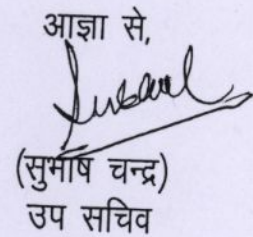 आज्ञा से,
(सुभाष चन्द्र)
उप सचिव